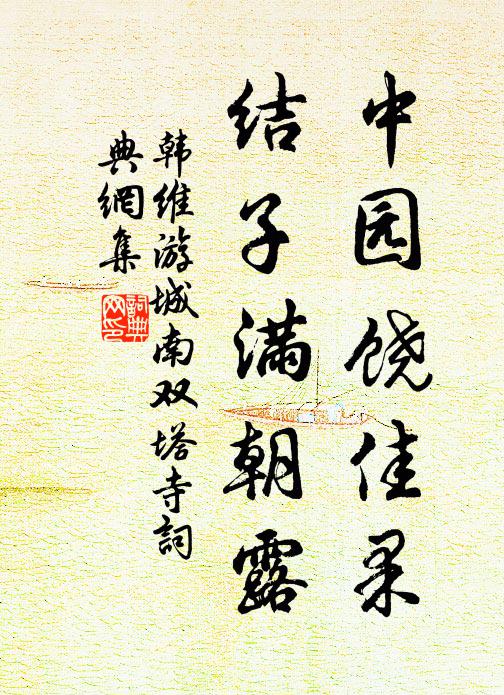 中园饶佳果
结子满朝露
韩维游城南双塔寺詞
典網集
詞典
网印